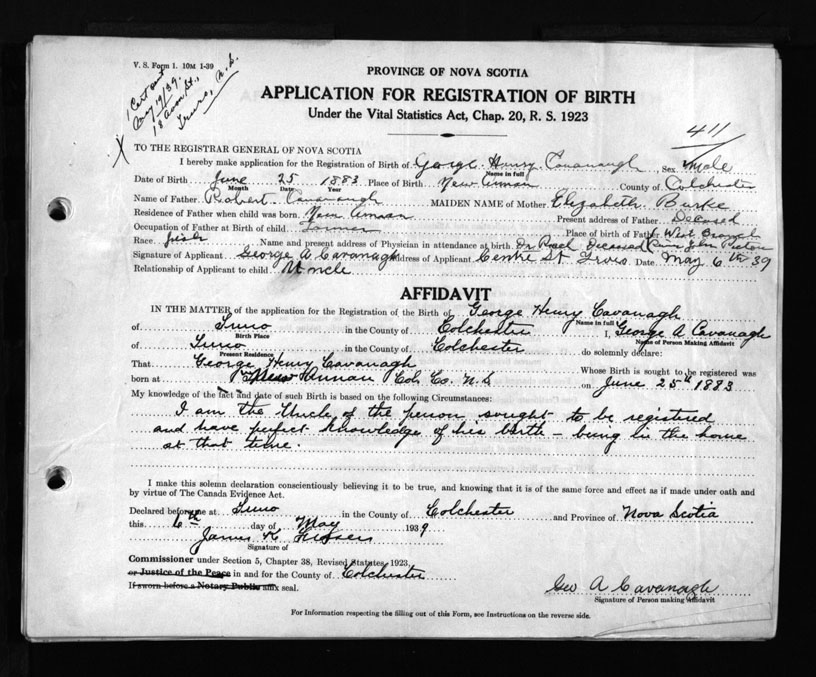 V. S. Form 1. 10M 1-39
1 Cert out
May 19/39.
18 Avon St.,
Truro, N.S.
PROVINCE OF NOVA SCOTIA
APPLICATION FOR REGISTRATION OF BIRTH
Under the Vital Statistics Act, Chap. 20, R. S. 1923
411
X
TO THE REGISTRAR GENERAL OF NOVA SCOTIA
I hereby make application for the Registration of Birth of George Henry Cavanaugh, Sex male
Name in full
Date of Birth June 25 1883 Place of Birth New Annan County of Colchester
Month Date Year
Name of Father Robert Cavanaugh MAIDEN NAME of Mother Elizabeth Burke
Residence of Father when child was born New Annan Present address of Father Deceased
Occupation of Father at Birth of child Farmer Place of birth of West Branch
Race Irish Name and present address of Physician in attendance at birth Dr Deceased River John Pictou
Signature of Applicant George A Cavanagh Address of Applicant Centre St Truro Date May 6th 39
Relationship of Applicant to child Uncle
AFFIDAVIT
IN THE MATTER of the application for the Registration of the Birth of George Henry Cavanagh
Name in full
of Truro in the County of Colchester I, George A Cavanagh
Birth Place Name of Person Making Affidavit
of Truro in the County of Colchester do solemnly declare:
Present Residence
That George Henry Cavanagh Whose Birth is sought to be registered was
born at New Annan Col. Co. N.S on June 25th 1883
My knowledge of the fact and date of such Birth is based on the following Circumstances:
I am the Uncle of the person sought to be registired
and have perfect knowledge of his birth – being in the home
at that time.
I make this solemn declaration conscientiously believing it to be true, and knowing that it is of the same force and effect as if made under oath and
by virtue of The Canada Evidence Act.
Declared before me at Truro in the County of Colchester and Province of Nova Scotia
this 6th day of May 1939
James K
Signature of
Commissioner under Section 5, Chapter 38, Revised Statutes 1923,
or Justice of the Peace in and for the County of Colchester
If sworn before a Notary Public affix seal.
Geo A Cavanagh
Signature of Person making Affidavit
For Information respecting the filling out of this Form, see Instructions on the reverse side.